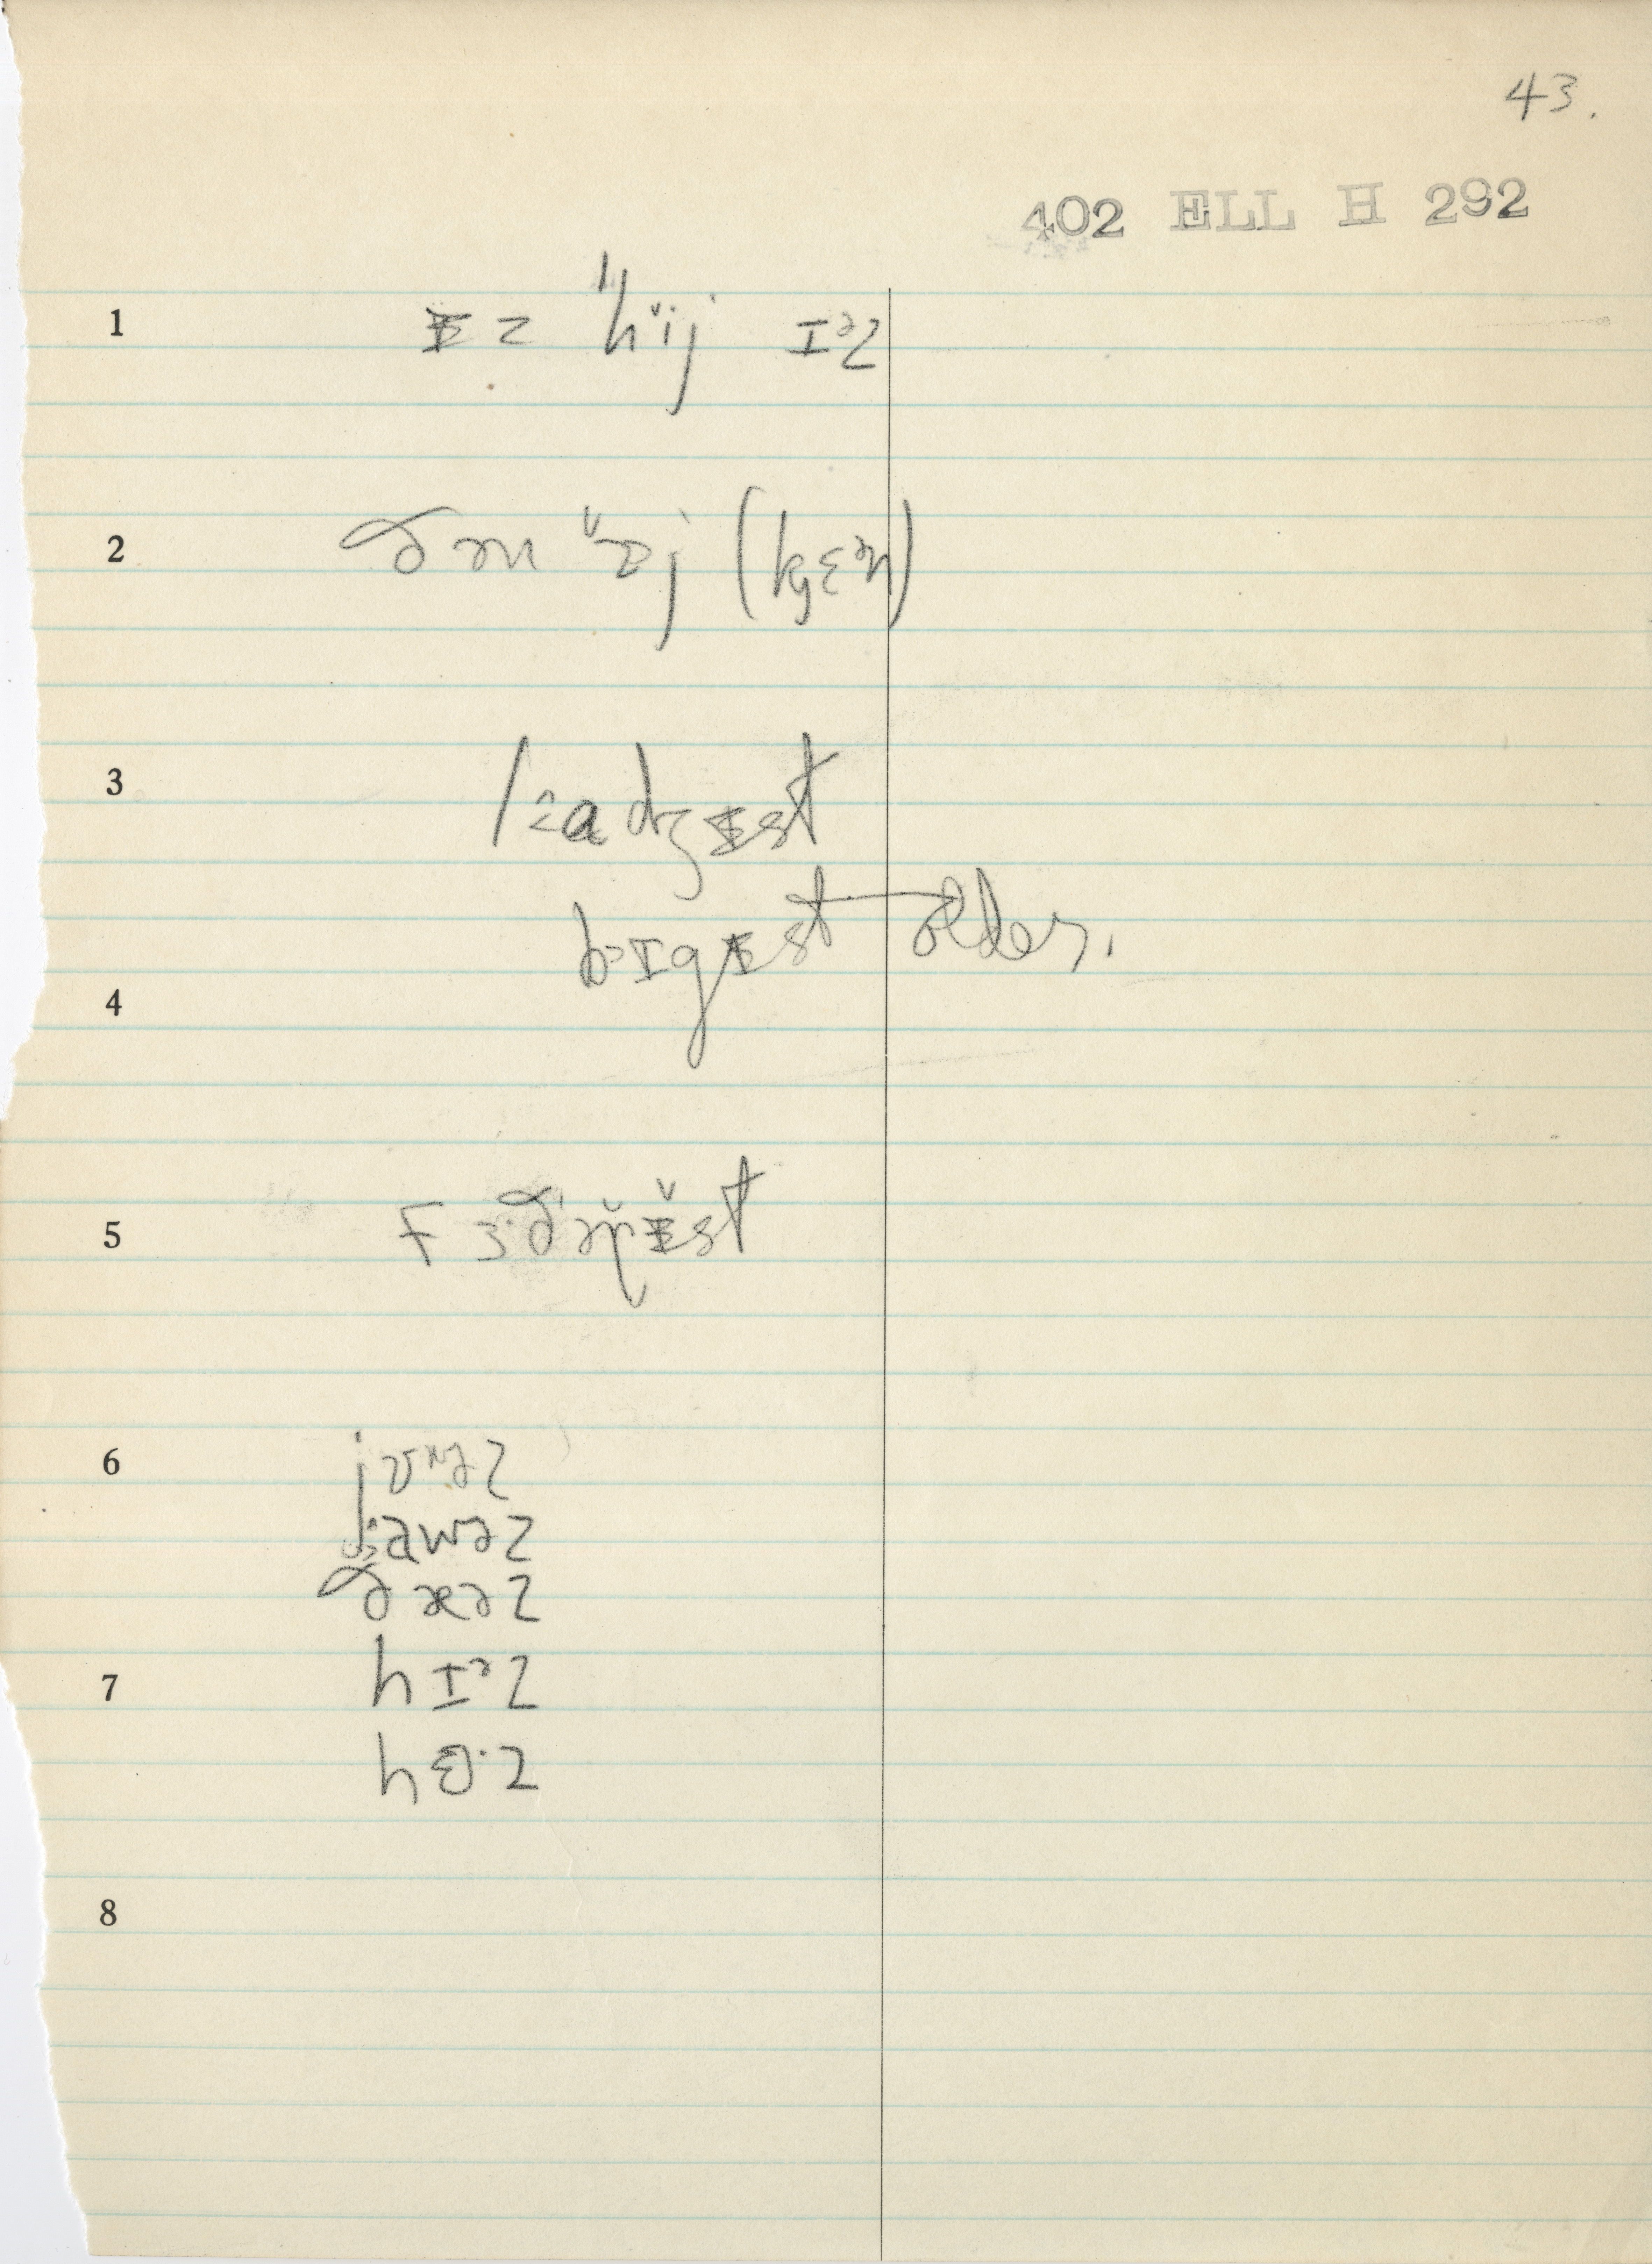 43.
402 ELL H 292
1 ɨ z hij ɪᵊz
2 ðən ɒj (kjɛᵊn)
3 lɑdʒɨst
bɪgɨst older.
4
5 fɜ·ðəɹɨst
6 jʊᵊz
jawəz
ðæəz
7 hɪᵊz
hɜ·z
8